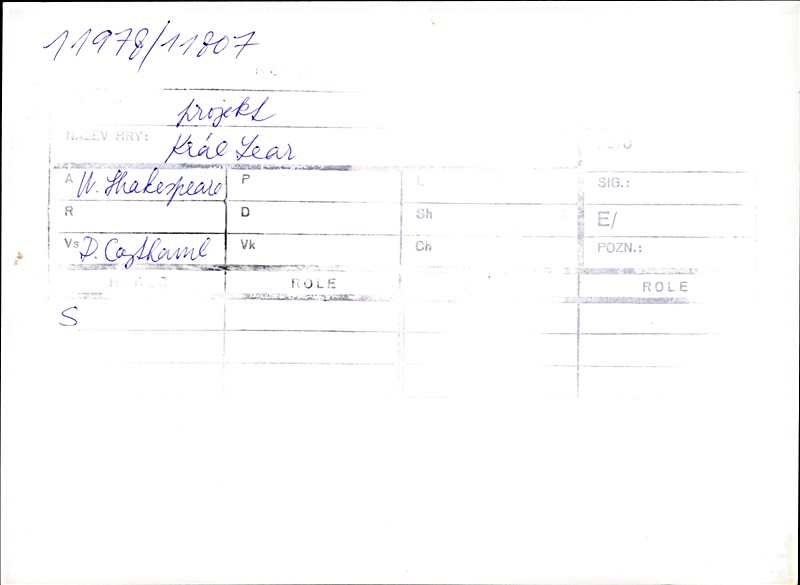 11978/11807
projekt
NÁZEV HRY: Král Lear
A W. Shakespeare P L SIG.:
R D Sh E/
Vs Vk Ch POZN.:
ROLE ROLE
S